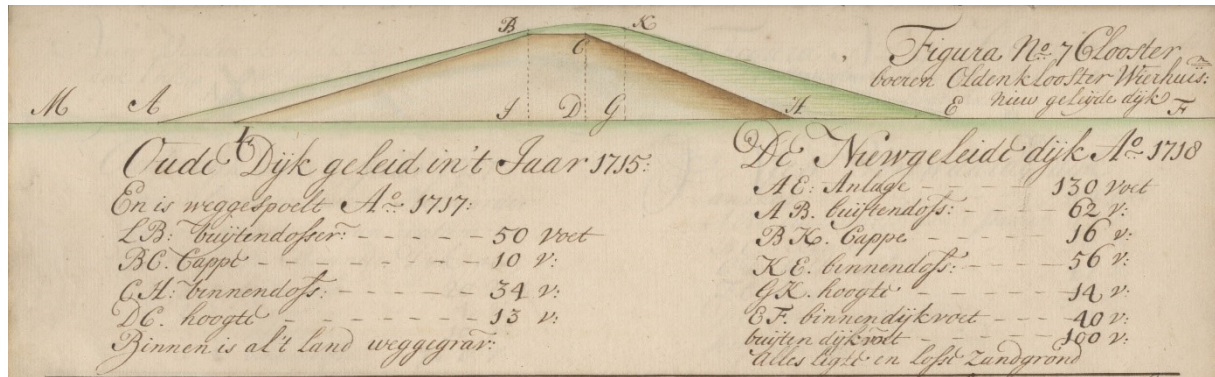 B K
C
Figura No. 7 Clooster
boeren Oldenklooster Wierhuis:
nieuw geleijde dijk
M A I D G H E F
L
Oude Dijk geleid in't Jaar 1715:
En is weggespoelt Ao. 1717:
LB: buijtendosser: - - - - - 50 voet
BC. Cappe - - - - - - - - 10 v:
CH: binnendoss: - - - - - - 34 v:
DC. hoogte - - - - - - - 13 v:
Binnen is al't land weggegrav:
De Niewgeleide dijk Ao. 1718
AE: Anlage - - - - - 130 voet
AB. buijtendoss: - - - - 62 v:
BK. Cappe - - - - - 16 v:
KE. binnendoss: - - - - 56 v:
GK. hoogte - - - - - 14 v:
EF. binnendijkvoet - - - - 40 v:
buijten dijkvoet - - - - 100 v:
Alles ligte en losse Zandgrond